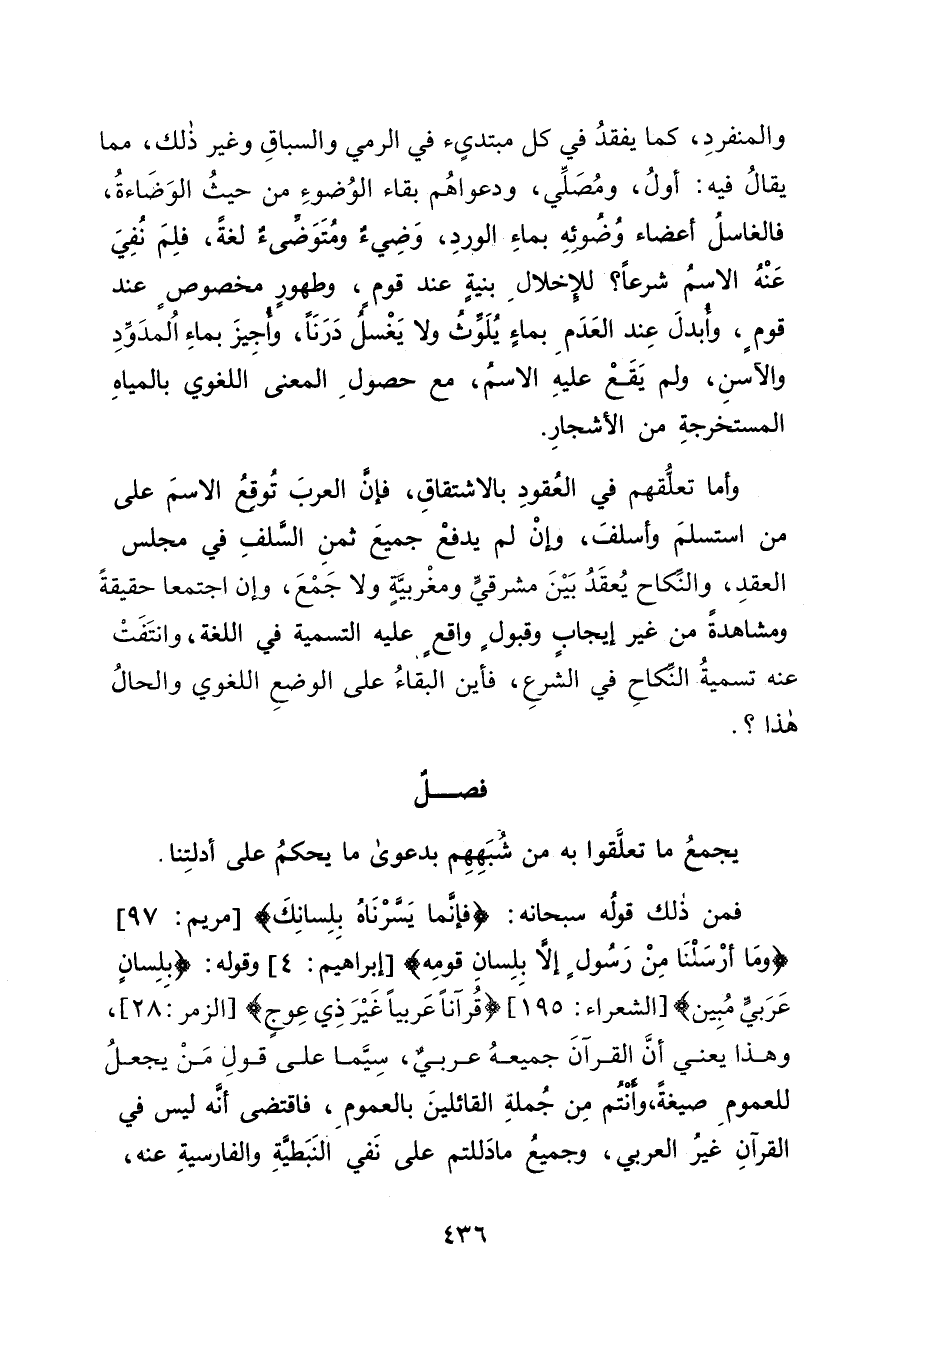 والمنفردِ، كما يفقدُ في كل مبتدىء في الرمي والسباقِ وغير ذٰلك، مما
يقالُ فيه: أولُ، ومُصَلِّي، ودعواهُم بقاء الوُضوءِ من حيثُ الوَضَاءةُ،
فالغاسلُ أعضاء وُضُوئِهِ بماءِ الوردِ، وَضِيءٌ ومُتَوَضِّىءٌ لغةً، فلِمَ نُفِيَ
عَنْهُ الاسمُ شرعاً؟ للإِخلالِ بنيةٍ عند قومٍ، وطهورٍ مخصوصٍ عند
قومٍ، وأُبدلَ عِند العَدَمِ بماءٍ يُلَوِّثُ ولا يَغْسلُ دَرَنَاً، وأُجيزَ بماءِ المدَوِّدِ
والآسنِ، ولم يَقَعْ عليهِ الاسمُ، مع حصولِ المعنى اللغوي بالمياهِ
المستخرجةِ من الأشجارِ.
وأما تعلُّقهم في العُقودِ بالاشتقاقِ، فإنَّ العربَ تُوقِعُ الاسمَ على
من استسلمَ وأسلفَ، وإنْ لم يدفعْ جميعَ ثمنِ السَّلفِ في مجلس
العقدِ، والنِّكاح يُعقَدُ بَيْنَ مشرقيٍّ ومغْربيَّةٍ ولا جَمْعَ، وإن اجتمعا حقيقةً
ومشاهدةً من غير إيجابٍ وقبولٍ واقعٍ عليه التسمية في اللغة، وانتَفَتْ
عنه تسميةُ النِّكاحِ في الشرعِ، فأين البقاءُ على الوضعِ اللغوي والحالُ
هٰذا ؟.
فصـــلٌ
يجمعُ ما تعلَّقوا به من شُبَهِهِم بدعوىٰ ما يحكمُ على أدلتِنا.
فمن ذٰلك قولُه سبحانه: ﴿فإنَّما يَسَّرْنَاهُ بِلِسانِكَ﴾ [مريم: ٩٧]
﴿ومَا أرْسَلْنَا مِنْ رَسُولٍ إلَّا بِلِسانِ قومِه﴾ [إبراهيم: ٤] وقوله: ﴿بِلِسانٍ
عَرَبيٍّ مُبِين﴾ [الشعراء: ١٩٥] ﴿قُرآناً عَربياً غَيْرَ ذِي عِوجٍ﴾ [الزمر :٢٨]،
وهـذا يعنـي أنَّ القـرآنَ جميعـهُ عـربـيٌ، سِيَّمـا علـى قـولِ مَـنْ يجعـلُ
للعمومِ صيغةً، وأَنْتُم مِن جُملةِ القائلينَ بالعمومِ، فاقتضى أنَّه ليس في
القرآنِ غيرُ العربي، وجميعُ مادَللتم على نَفي النَبَطيَّةِ والفارسيةِ عنه،
٤٣٦